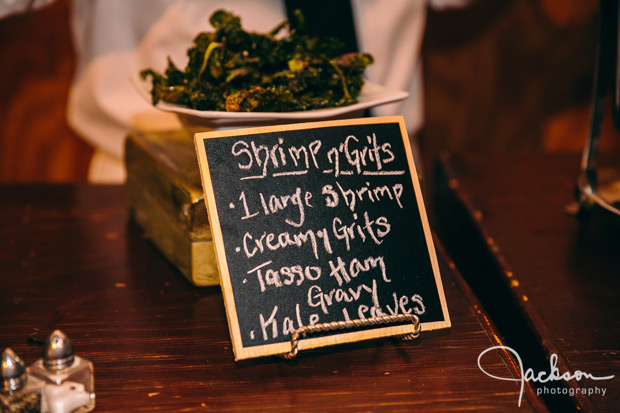 Shrimp n' Grits
• 1 large Shrimp
• Creamy Grits
• Tasso Ham
Gravy
• Kale Leaves
Jackson
photography